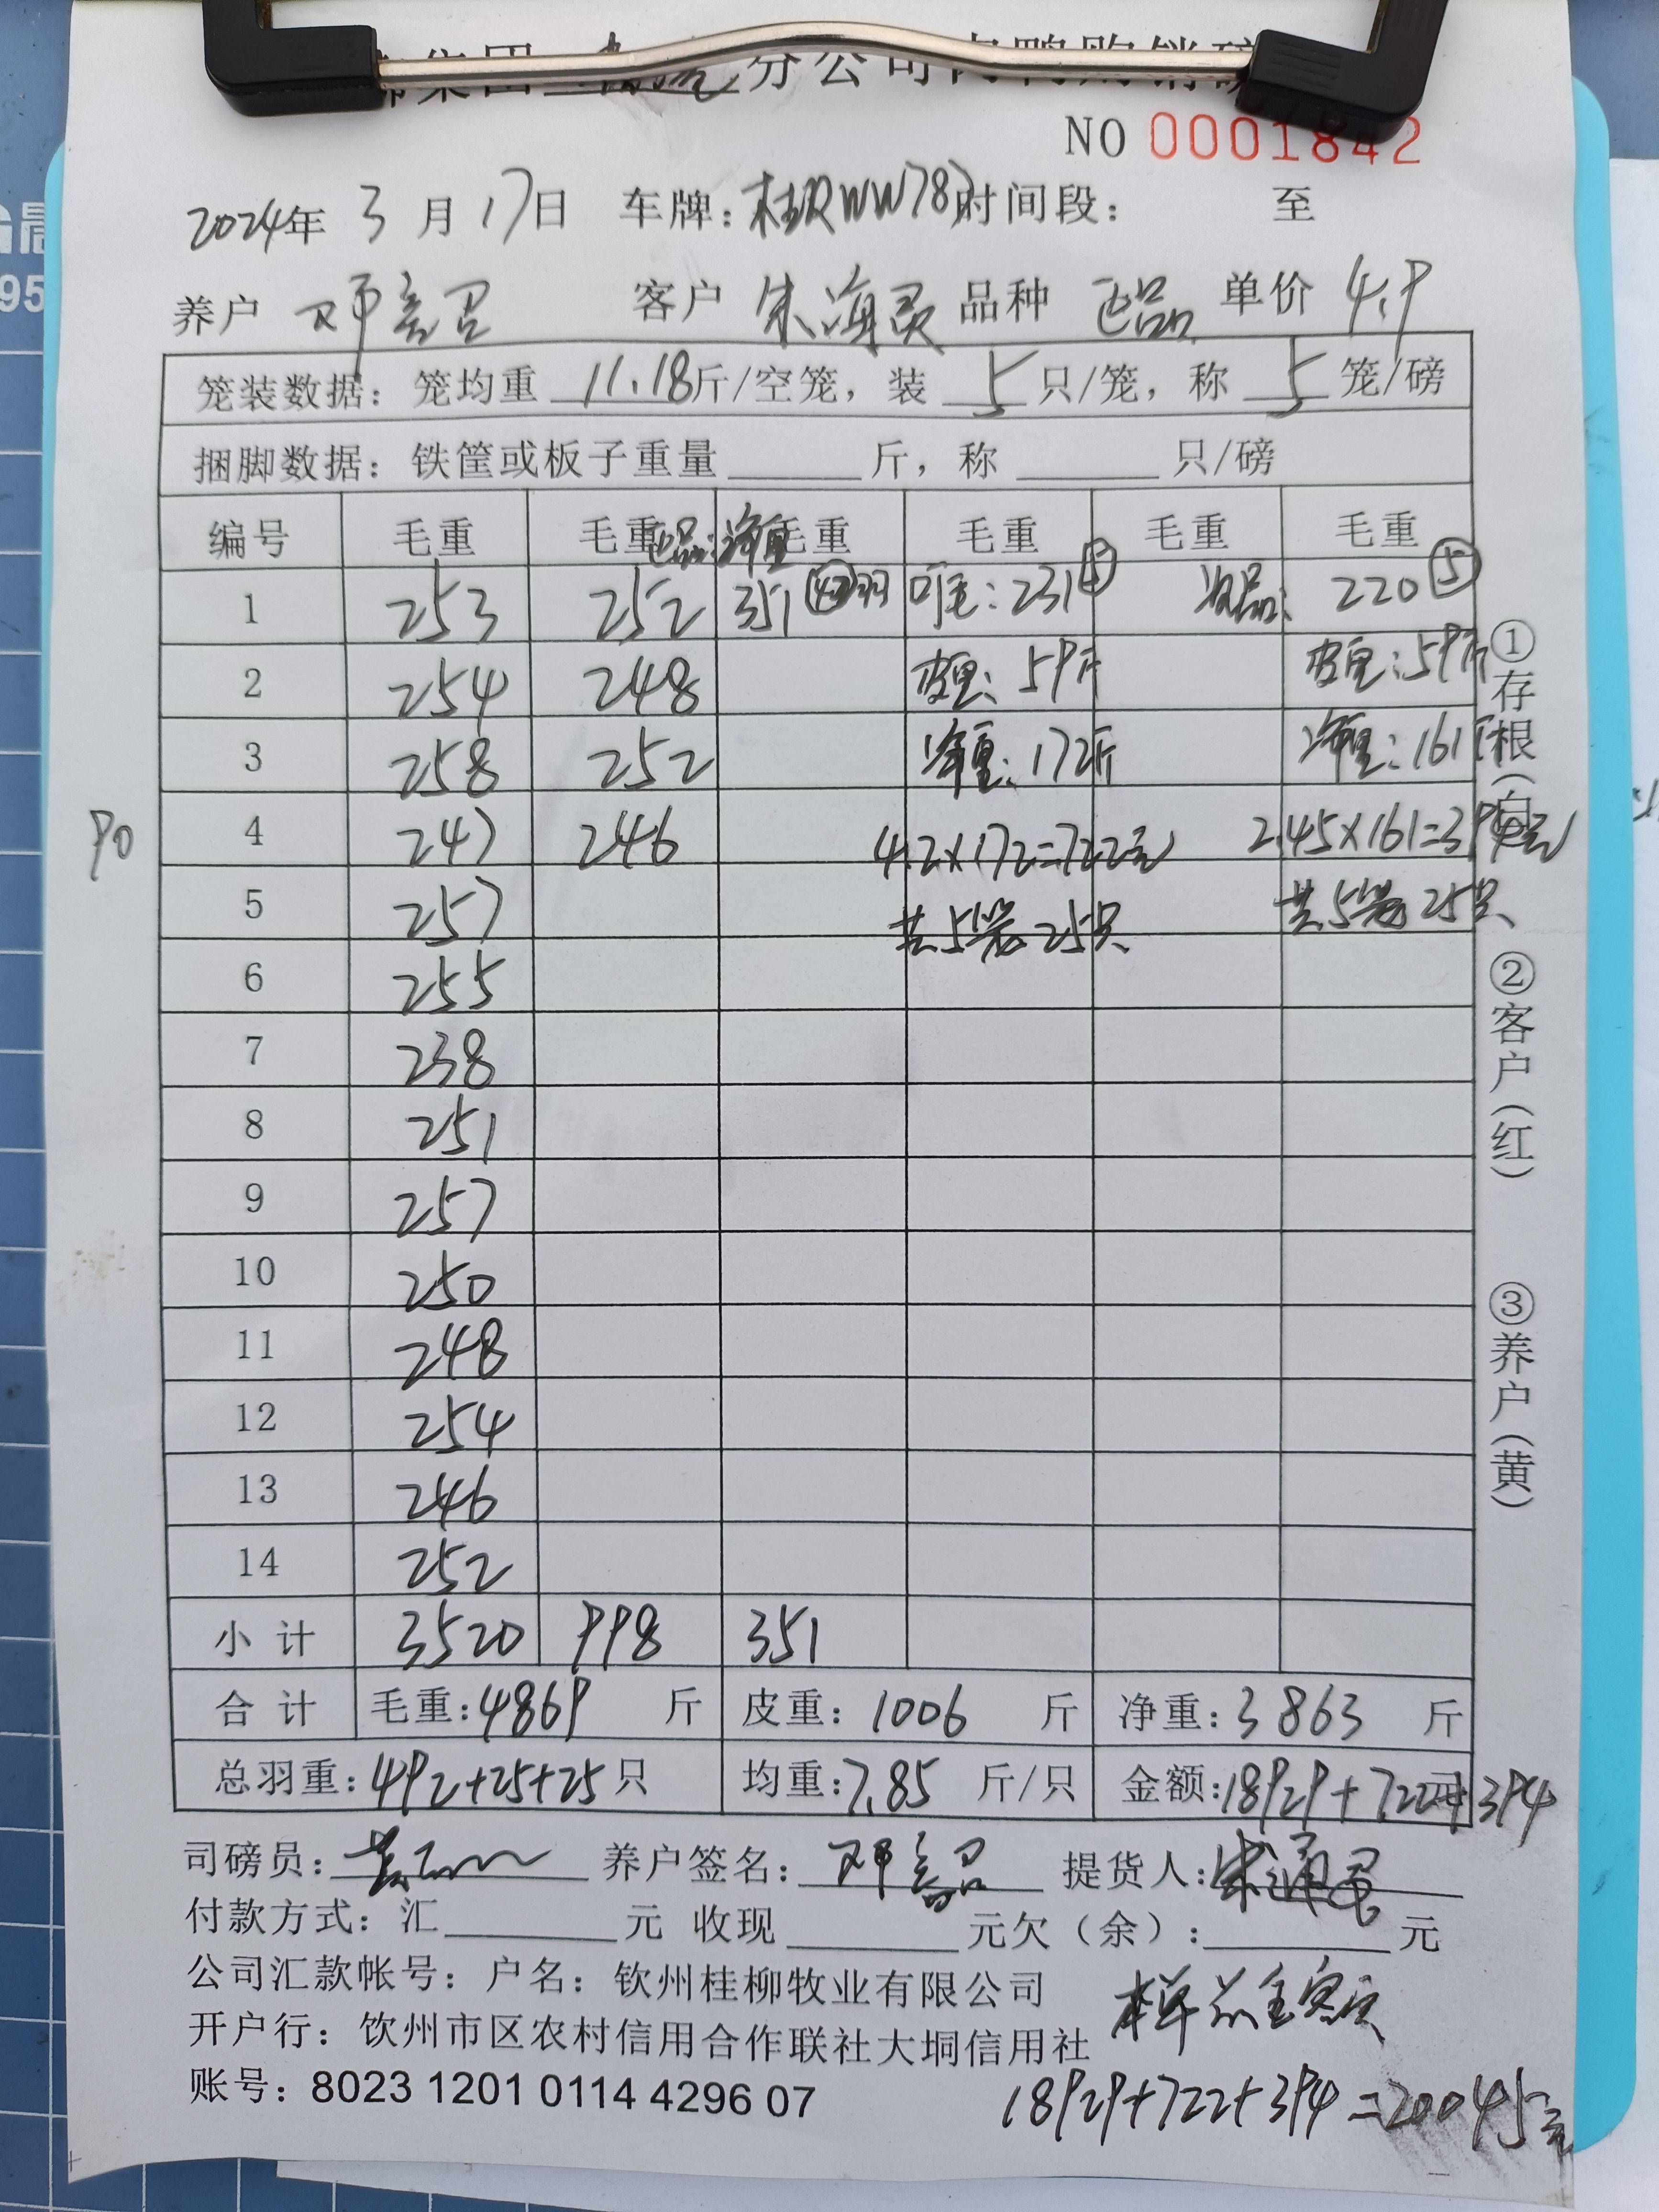 集团 分公司肉鸭购销磅
NO 0001842
2024年 3月17日 车牌: 桂RWW787 时间段: 至
养户 邓 客户 朱海 品种 正品 单价 4.9
笼装数据: 笼均重 11.18斤/空笼, 装 5 只/笼, 称 5 笼/磅
捆脚数据: 铁筐或板子重量 斤, 称 只/磅
编号 毛重 毛重 毛重 毛重 毛重 毛重
正品:净重
1 253 252 351 42羽 毛: 231⑤ 次品: 220⑤
2 254 248 皮重: 59斤 皮重: 59斤
3 258 252 净重: 172斤 净重: 161斤
90 4 247 246 4.2×172=722元 2.45×161=394元
5 257 共5笼25只 共5笼25只
6 255
7 238
8 251
9 257
10 250
11 248
12 254
13 246
14 252
小计 3520 998 351
合计 毛重:4869 斤 皮重: 1006 斤 净重: 3863 斤
总羽重: 492+25+25只 均重: 7.85 斤/只 金额: 18929+722元+394
①存根(白) ②客户(红) ③养户(黄)
司磅员: 养户签名: 邓 提货人:
付款方式: 汇 元 收现 元欠(余): 元
公司汇款帐号: 户名: 钦州桂柳牧业有限公司
本单总金额
开户行: 钦州市区农村信用合作联社大垌信用社
账号: 8023 1201 0114 4296 07
18929+722+394=20045元